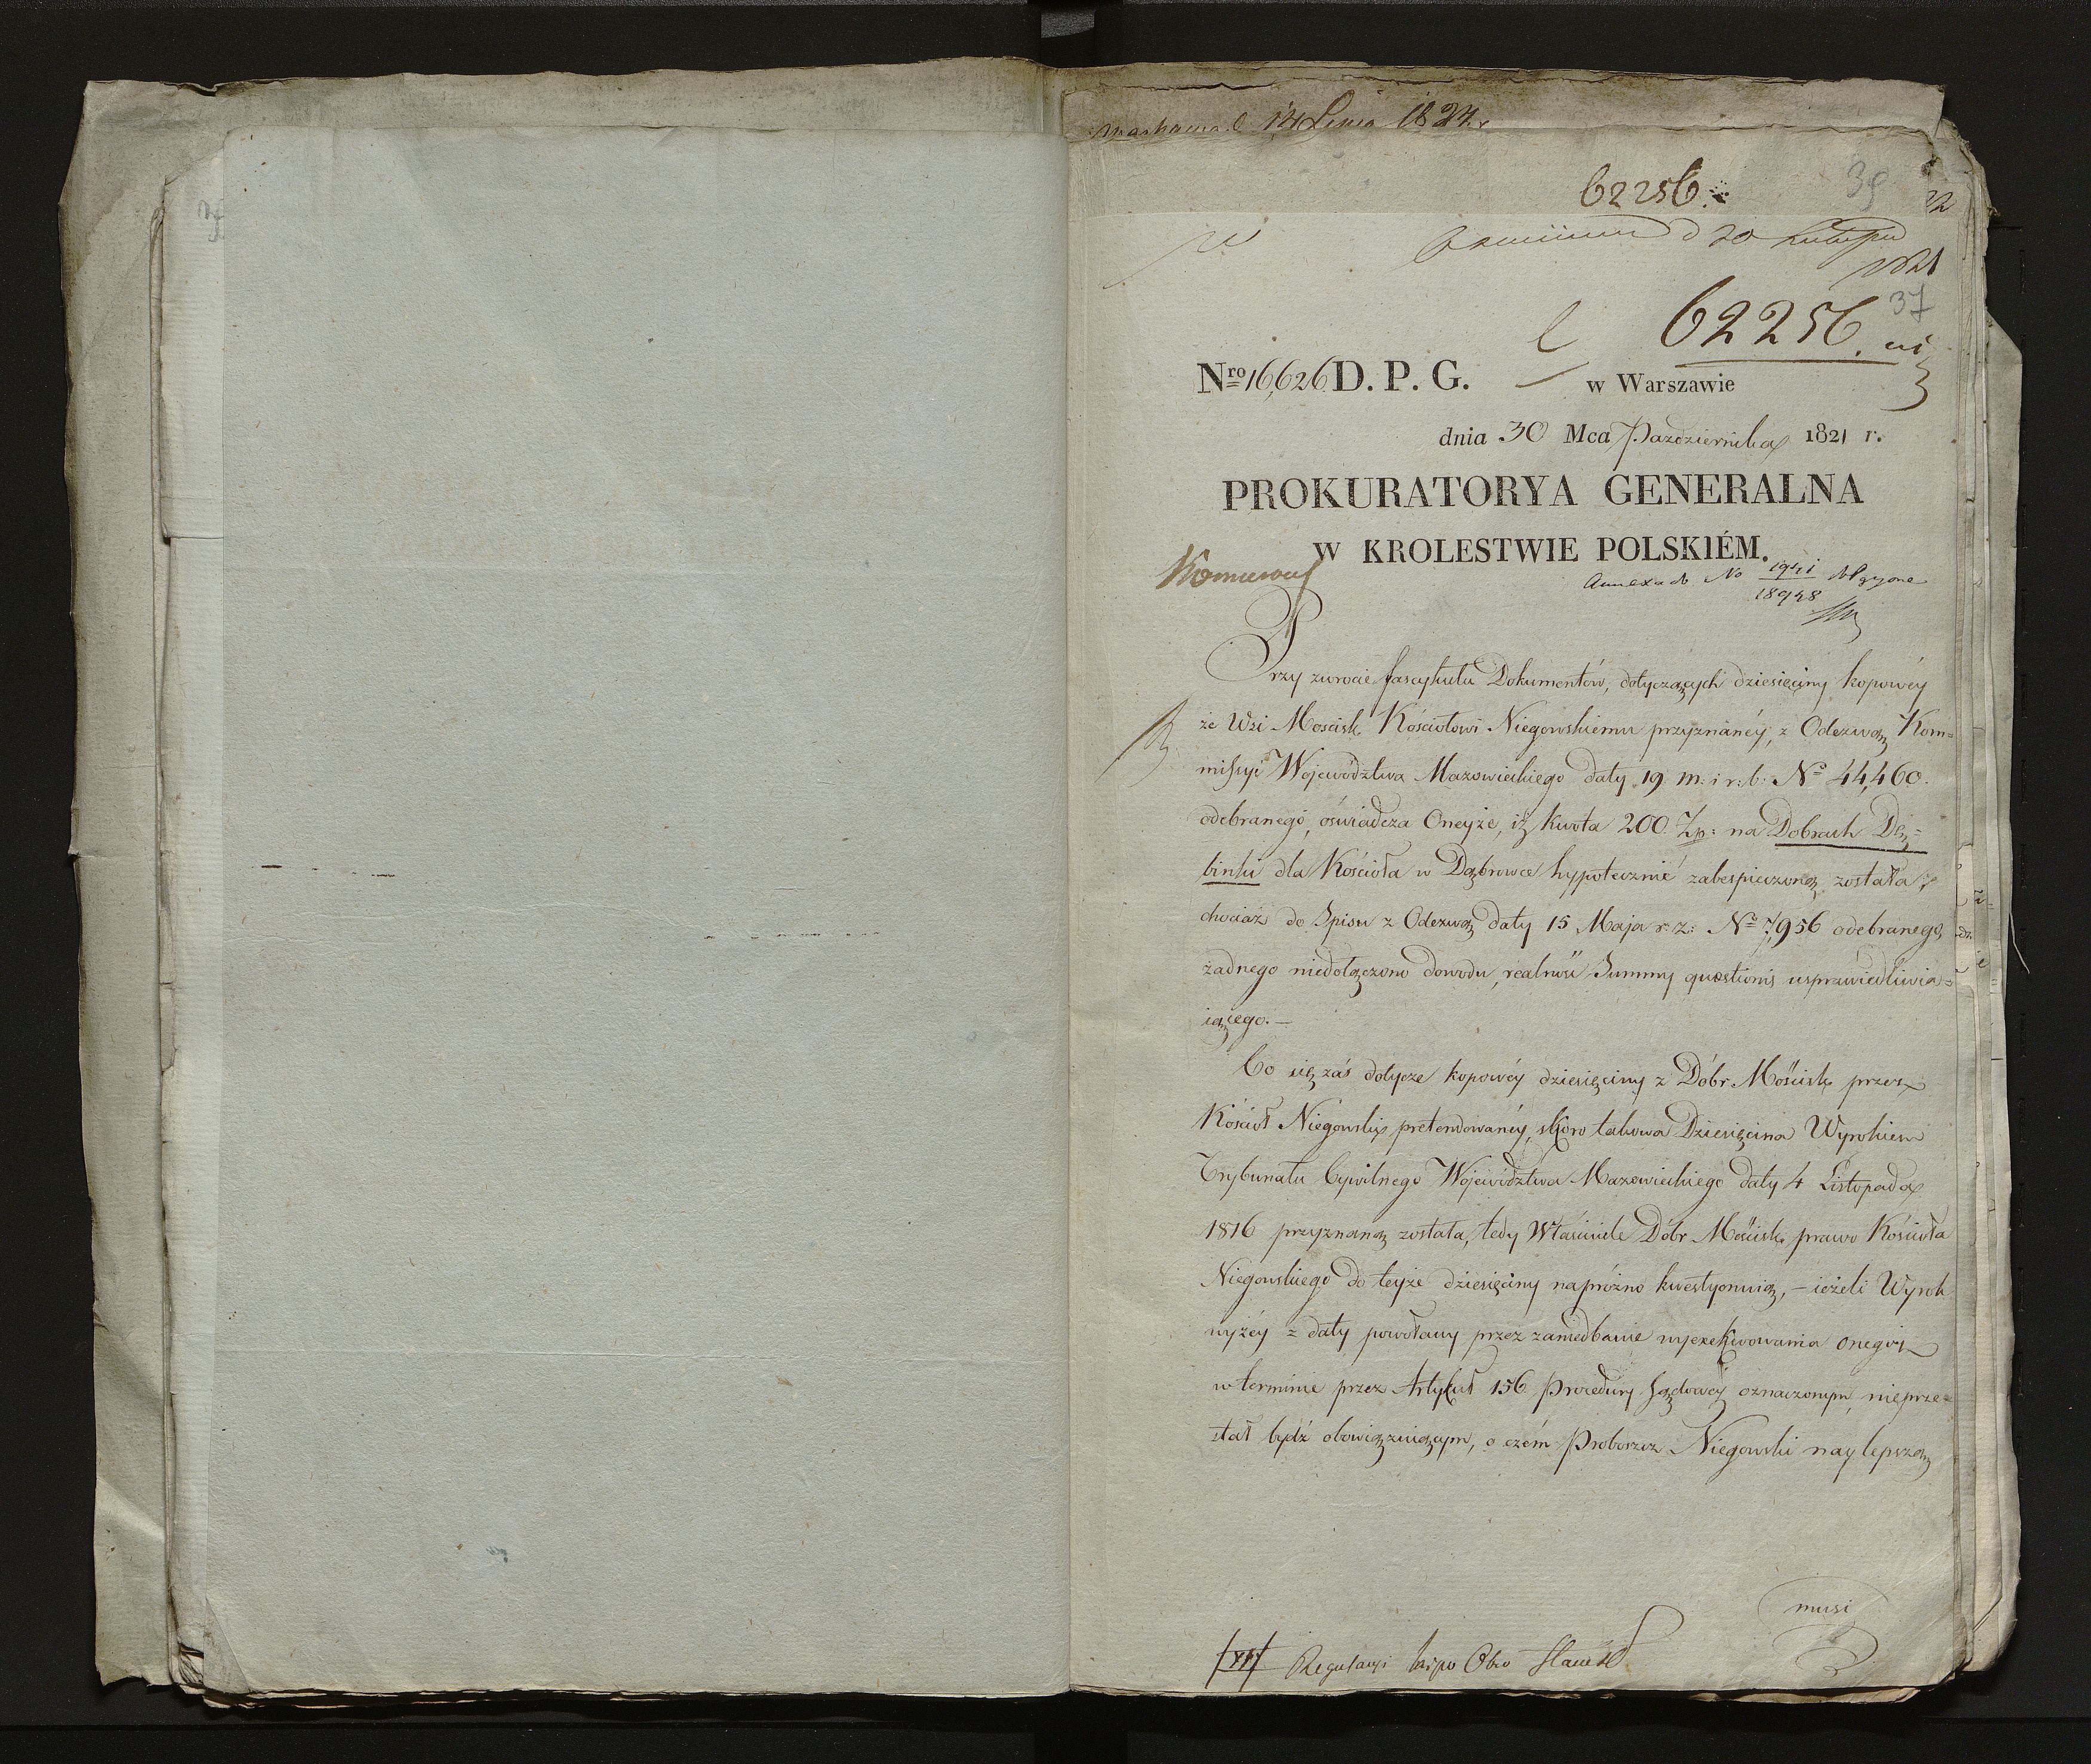 1824.
62256
39
d 20
1821
37
62256.
Nro 16,626 D. P. G.
w Warszawie
dnia 30 Mca Pazdziernika 1821 r.
PROKURATORYA GENERALNA
W KROLESTWIE POLSKIÉM.
Annexa do No 1941
18948
Przy zwrocie fascykułu Dokumentów, dotyczących dziesięciny kopowéy
ze Wsi Moscisk Kościołowi Niegowskiemu przyznanéy, z Odezwą Kom=
missyi Województwa Mazowieckiego daty 19 m: i r: b: No 44,460.
odebranego, oświadcza Oneyże, iż kwota 200 Zp: na Dobrach Dę=
binki dla Kościoła w Dąbrowce hypotecznie zabespieczoną została,
chociaż do Spisu z Odezwą daty 15 Maja r: z: No 7,956 odebranego,
żadnego niedołączono dowodu, realność Summy quæstionis usprawiedliwia=
iącego. —
Co się zaś dotycze kopowéy dziesięciny z Dóbr Mościsk przez
Kościół Niegowski pretendowanéy, skoro takowa Dziesięcina Wyrokiem
Trybunału Cywilnego Województwa Mazowieckiego daty 4 Listopada
1816 przyznaną została, tedy Właściciele Dóbr Mościsk prawo Kościoła
Niegowskiego do teyże dziesięciny napróżno kwestyonuią, — ieżeli Wyrok
wyżéy z daty powołany przez zaniedbanie wyexekwowania onegoż
w terminie przez Artykuł 156 Procedury Sądowéy oznaczonym, nieprze=
stał bydź obowiązuiącym, o czém Proboszcz Niegowski naylepszą
musi